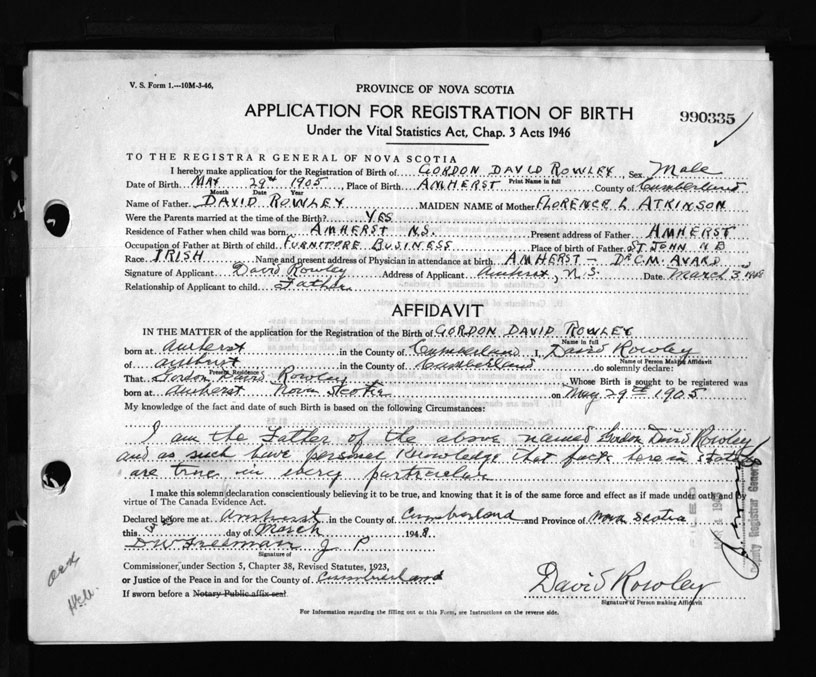 V. S. Form 1.—10M-3-46,
PROVINCE OF NOVA SCOTIA
APPLICATION FOR REGISTRATION OF BIRTH
990335
Under the Vital Statistics Act, Chap. 3 Acts 1946
TO THE REGISTRAR GENERAL OF NOVA SCOTIA
I hereby make application for the Registration of Birth of GORDON DAVID ROWLEY, Sex Male
Print Name in full
Date of Birth MAY 29th 1905 Place of Birth AMHERST County of Cumberland
Month Date Year
Name of Father DAVID ROWLEY MAIDEN NAME of Mother FLORENCE L ATKINSON
Were the Parents married at the time of the Birth? YES
Residence of Father when child was born AMHERST N.S. Present address of Father AMHERST
Occupation of Father at Birth of child FURNITORE BUSINESS Place of birth of Father ST JOHN N B
Race IRISH Name and present address of Physician in attendance at birth AMHERST - Dr C.M. AVARD
Signature of Applicant David Rowley Address of Applicant Amherst, N.S. Date March 3rd 1948
Relationship of Applicant to child Father
AFFIDAVIT
IN THE MATTER of the application for the Registration of the Birth of GORDON DAVID ROWLEY
Name in full
born at Amherst in the County of Cumberland I, David Rowley
Name of Person Making Affidavit
of Amherst in the County of Cumberland do solemnly declare:
Present Residence
That Gordon David Rowley, Whose Birth is sought to be registered was
born at Amherst Nova Scotia on May 29th 1905
My knowledge of the fact and date of such Birth is based on the following Circumstances:
I am the Father of the above named Gordon David Rowley
and as such have personal knowledge that facts here in stated
are true in every particular
I make this solemn declaration conscientiously believing it to be true, and knowing that it is of the same force and effect as if made under oath and by
virtue of The Canada Evidence Act.
Declared before me at Amherst in the County of Cumberland and Province of Nova Scotia
this 3rd day of March 1948
DW Freeman J P
Signature of
Commissioner, under Section 5, Chapter 38, Revised Statutes, 1923,
or Justice of the Peace in and for the County of Cumberland
If sworn before a Notary Public affix seal.
David Rowley
Signature of Person making Affidavit
For Information regarding the filling out of this Form, see Instructions on the reverse side.
Deputy Registrar General